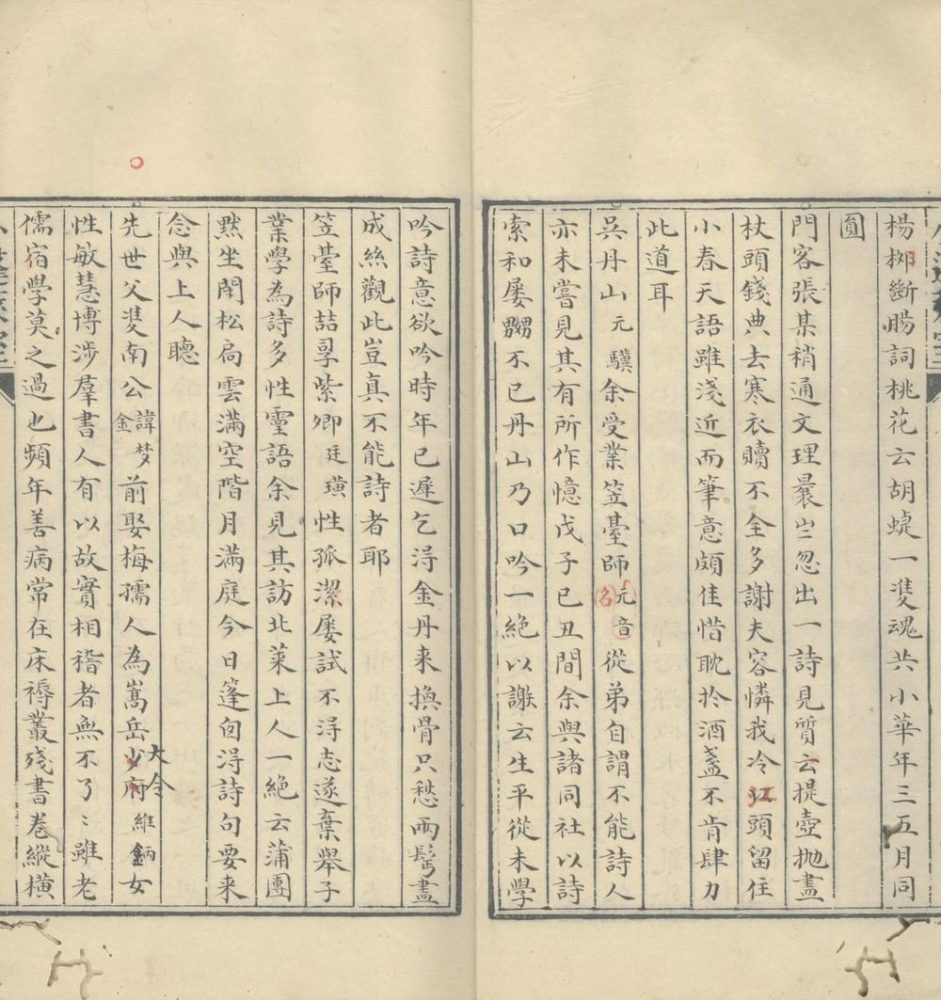 楊柳斷腸詞桃花云胡蜨一雙魂共小華年三五月同
圓
門客張某稍通文理曩岁忽出一詩見質云提壺抛盡
杖頭錢典去寒衣贖不全多謝夫容憐我冷江頭留住
小春天語雖淺近而筆意頗佳惜耽於酒盞不肯肆力
此道耳
吳丹山元驥余受業笠臺師元音名從弟自謂不能詩人
亦未嘗見其有所作憶戊子己丑間余與諸同社以詩
索和屡嬲不已丹山乃口吟一絕以謝云生平從未學
吟詩意欲吟時年已遲乞淂金丹来換骨只愁兩鬂盡
成絲觀此豈真不能詩者耶
笠臺師喆畧紫卿廷璜性孤潔屡試不淂志遂棄舉子
業學為詩多性靈語余見其訪北萊上人一絕云蒲團
黙坐閉松扃雲滿空階月滿庭今日篷囱淂詩句要来
念與上人聽
先世父雙南公諱梦金前娶梅孺人為嵩岳少府大令維鈵女
性敏慧博涉羣書人有以故實相稽者無不了〻雖老
儒宿學莫之過也頻年善病常在床褥叢殘書卷縱橫